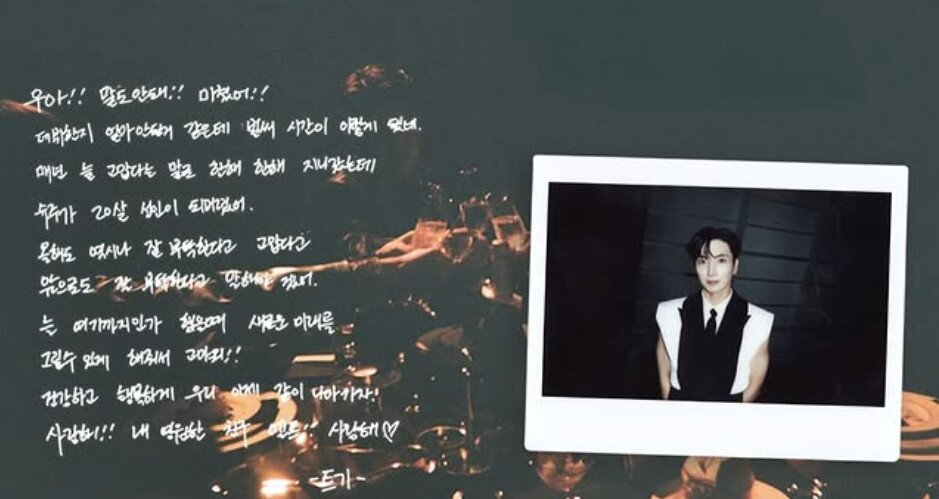 우아!! 말도안돼!! 미쳤어!!
데뷔한지 얼마안된거 같은데 벌써 시간이 이렇게 됐네.
매년 늘 고맙다는 말로 한해 한해 지나갔는데
슈주가 20살 성인이 되어있어.
올해도 역시나 잘 부탁한다고 고맙다고
앞으로도 잘 부탁한다고 말해야 겠어.
늘 여기까지인가 했을때 새로운 미래를
그릴수 있게 해줘서 고마워!!
건강하고 행복하게 우리 이제 같이 나아가자!
사랑해!! 내 영원한 친구 엘프!! 사랑해♡
-특기-